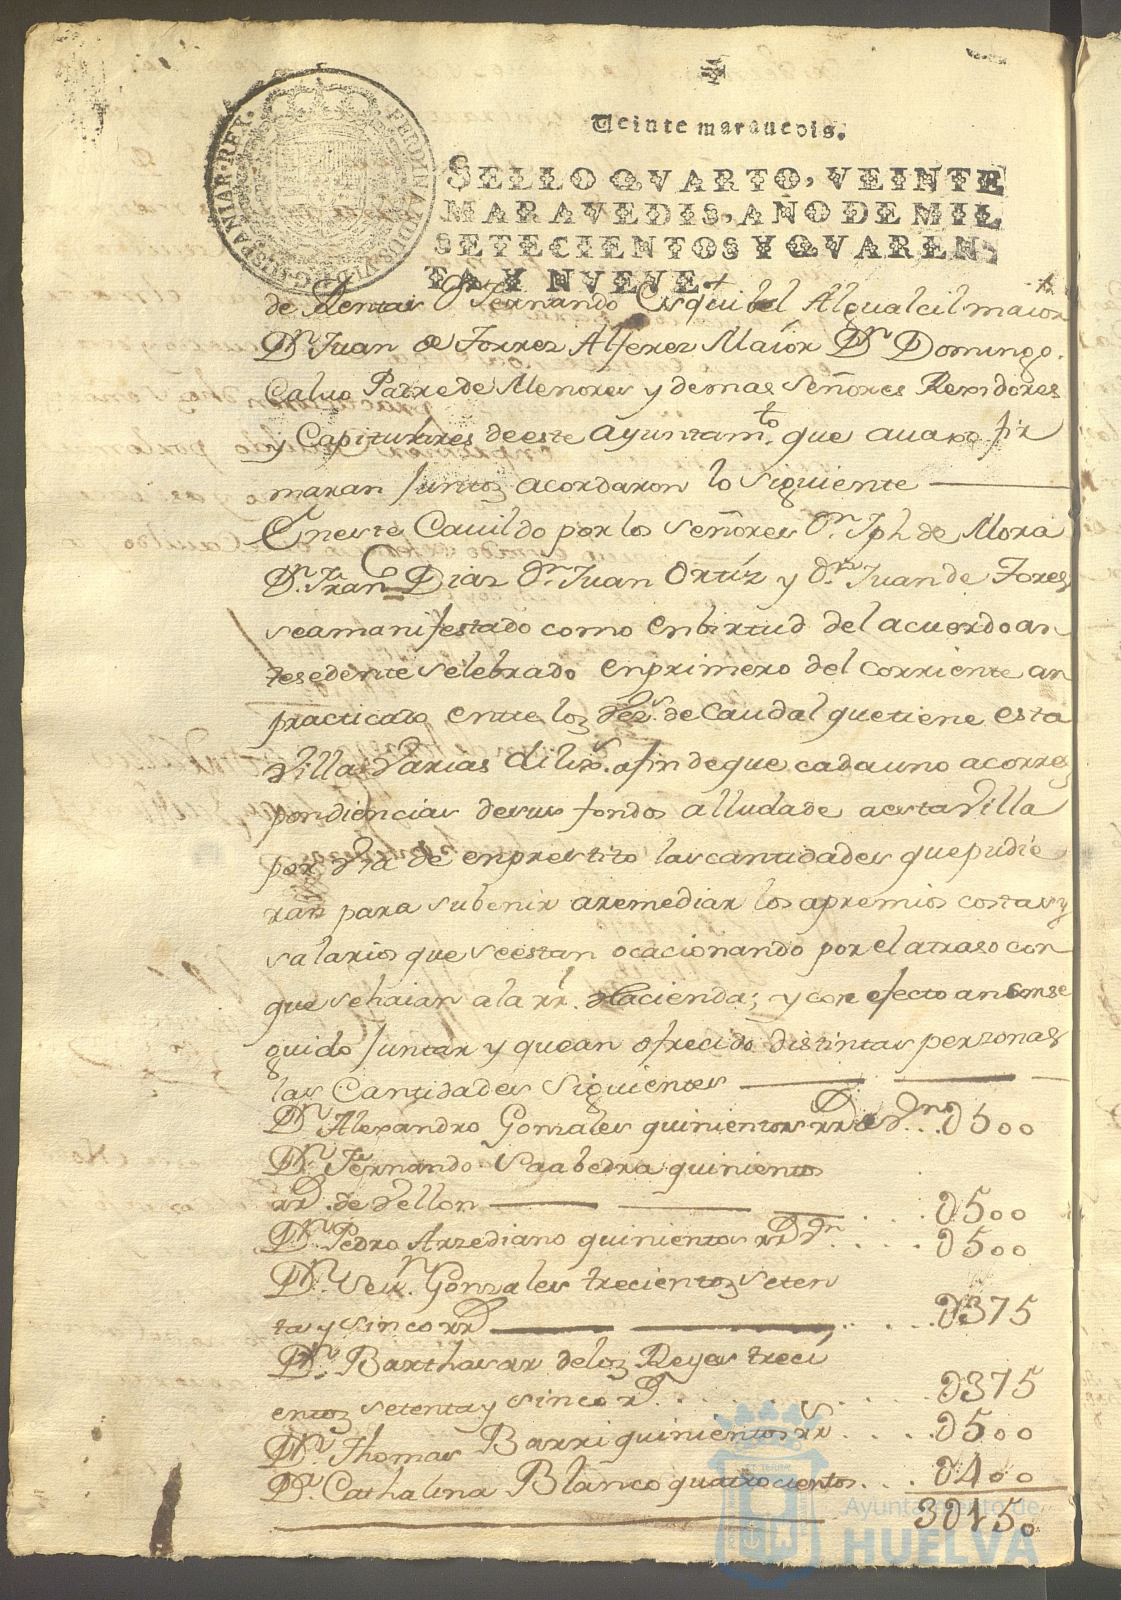 FERDINANDUS·VI·D·G·HISPANIAR·REX·
Veinte marauedis.
SELLO QVARTO, VEINTE
MARAVEDIS, AÑO DE MIL
SETECIENTOS Y QVAREN-
TA Y NVEVE.
de Rentas Dn Fernando Esquibel Alguacil maior
Dn. Juan de Torres Alferes Maíor Dn. Domingo
Calvo Padre de Menores y demas señores Rexidores
y Capitulares de este Ayuntamto. que auaxo fir
maran Juntos acordaron lo siguiente
En este Cauildo por los señores Dn. Jph de Mora
Dn. Franco Dias Dn. Juan Ortíz y Dn. Juan de Tores
se a manifestado como en birtud del acuerdo an
tesedente selebrado en primero del corriente an
practicado entre los de Caudal que tiene esta
Villa Varias dilixs. afin de que cada uno a corres
pondiencias de sus fondos alludade a esta Villa
por Via de enprestito las cantidades que pudie
ran para subenir a remediar los apremios costas y
salarios que se estan ocacionando por el atraso con
que se haian a la rl. Hacienda; y con efecto an conse
guido Juntar y que an ofrecido distintas personas
las Cantidades Siguientes
Dn. Alexandro Gonzales quinientos rrs de Vn. D500
Dn. Fernando Saabedra quinientos
rrs. de Vellon D500
Dn. Pedro Arzediano quinientos rrs Vn D500
Dn. Seun. Gonzales trecientos seten
ta y sinco rrs D375
Dn. Barthasar de los Reyes treci
entos setenta y sinco rs. D375
Dn. Thomas Barri quinientos rrs D500
Da. Cathalina Blanco quatrocientos D400
3D150
Ayuntamiento de
HUELVA